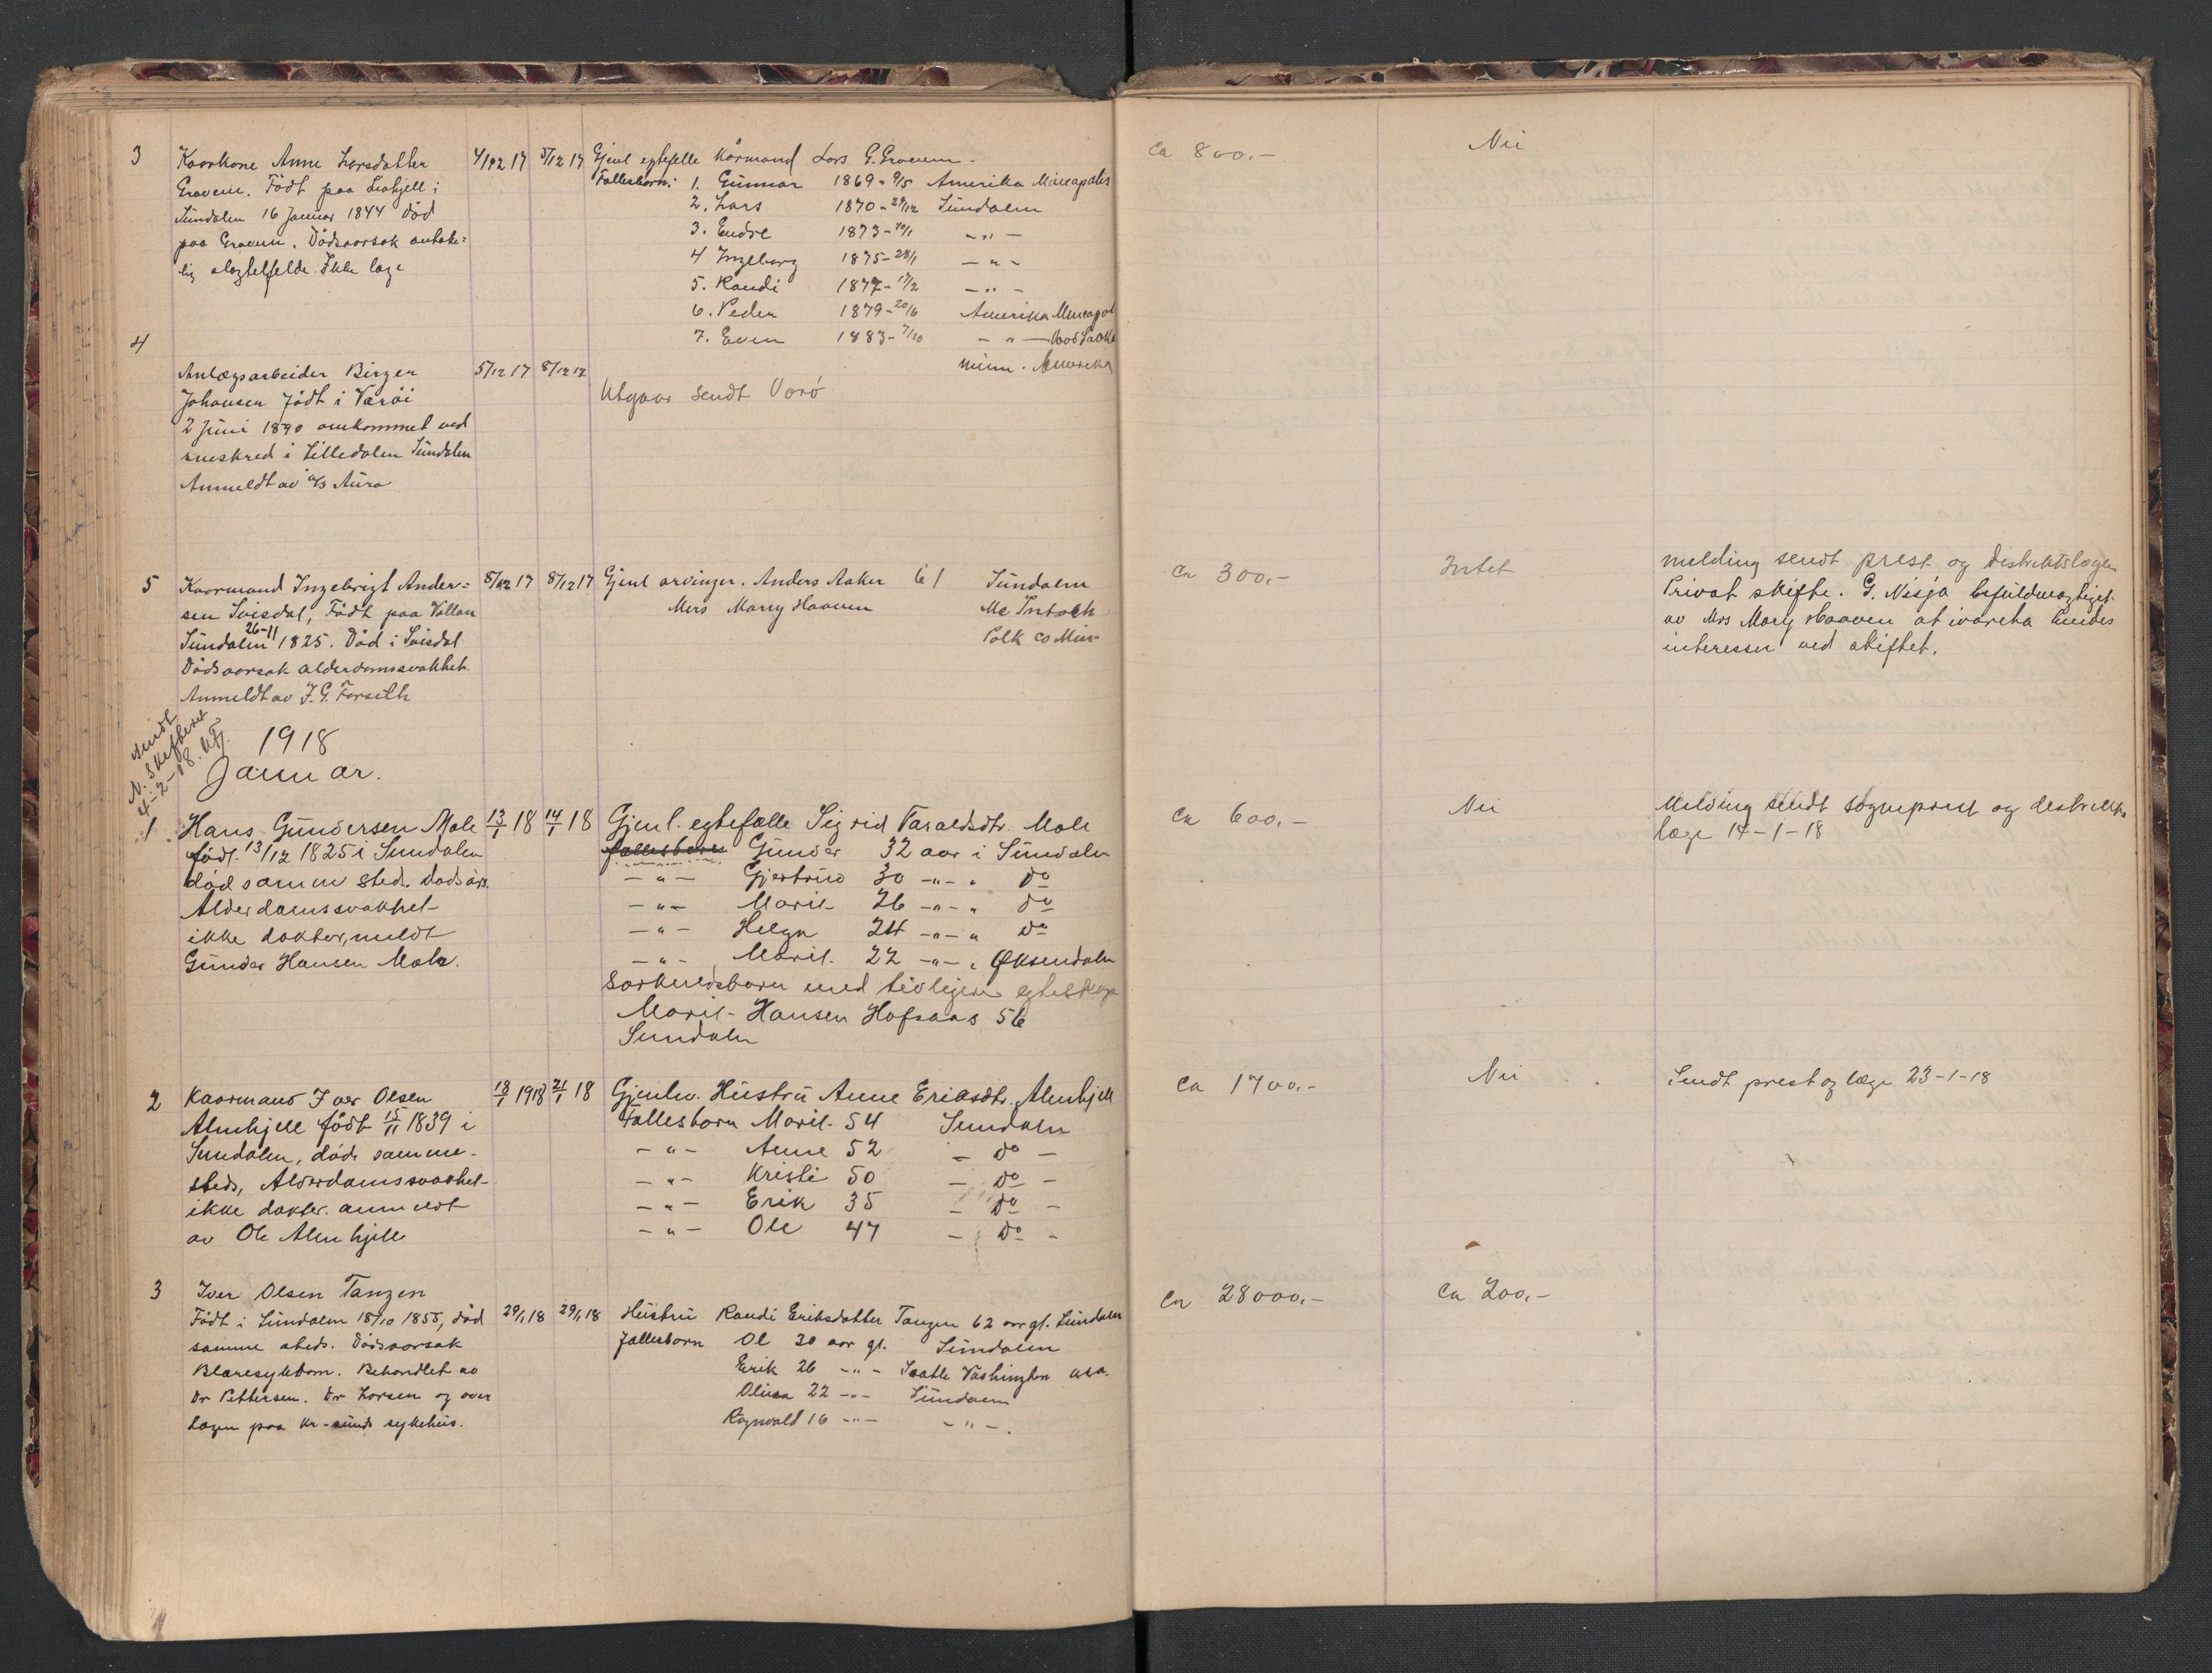 3 Kaarkone Anne Larsdatter 4/12 17 5/12 17 Gjenl egtefelle Kårmand Lars G. Gravem - ca 800.- Nei
Gravem. Födt paa Liahjell i Fællesbarn: 1. Gunnar 1869 - 9/5 Amerika
Sundalen 16 Januar 1844 død 2. Lars 1870 - 29/12 Sundalen
paa Gravem. Dödsaarsak antake= 3. Endre 1873 - -„-
lig slagtelfelde. Ikke læge 4 Ingeborg 1875 - 28/1 -„-
5. Randi 1877 - 17/2 -„-
6. Peder 1879 - 20/6 Amerika
7. Even 1883 - 7/10 -„-
Minn. Amerika
4
Anlægsarbeider Birger 5/12 17 8/12 17
Johansen födt i Værøi Utgaar sendt Værö
2 Juni 1890 omkommet ved
sneskred i Lilledalen Sundalen
Anmeldt av a/s Aura
5 Kaarmand Ingebrigt Ander= 8/12 17 8/12 17 Gjenl arvinger. Anders Aaker 61 Sundalen ca 300.- Intet melding sendt prest og distriktslægen
sen Svisdal, Födt paa Vollan Mrs Marry Haaven Mc Intosh Privat skifte. G. Nisja befuldmægtiget
Sundalen 26-11 1825. Död i Svisdal Polk Co Min av Mrs Mary Haaven at ivareta hendes
Dödsaarsak alderdomssvakhet. interesser ved skiftet.
Anmeldt av J. G. Forseth
sendt
N. Skifteret
4-2-18.
1918
Januar.
1 Hans Gundersen Mæle 13/1 18 14/1 18 Gjenl. egtefælle Sigrid Taraldsdtr. Mæle ca 600.- Nei Melding sendt sogneprest og destrikts
født 13/12 1825 i Sundalen fællesbarn Gunder 32 aar i Sundalen læge 14-1-18
død samme sted. Dødsårs. -„- Gjertrud 30 -„- „ do
Alderdomssvakhet -„- Marit 26 -„- „ do
ikke dokter, meldt -„- Helga 24 -„- „ do
Gunder Hansen Mæle. -„- Marit. 22 -„- „ Øksendalen
Særkuldsbarn med tidligere egteskap
Marit Hansen Hafsaas 56
Sundalen
2 Kaarmand Iver Olsen 18/1 1918 21/1 18 Gjenlev. Hustru Anne Eriksdtr. Almhjell ca 1700.- Nei Sendt prest og læge 23-1-18
Almhjell født 15/11 1839 i Fællesbarn Marit 54 Sundalen
Sundalen, død samme- -„- Anne 52 - do -
steds, Alderdomssvakhet -„- Kristi 50 - do -
ikke dokter. anmeldt -„- Erik 35 - do -
av Ole Almhjell -„- Ole 47 - do -
3 Iver Olsen Tangen
Födt i Sundalen 18/10 1855, död 29/1 18 29/1 18 Hustru Randi Eriksdatter Tangen 62 aar gl. Sundalen ca 28000.- ca 200.-
samme steds. Dödsaarsak fællesbarn Ol 30 aar gl. Sundalen
Blæresykdom. Behandlet av Erik 26 -„- Seatle Vashington usa.
Dr Pettersen. Dr Larsen og over Olina 22 -„- Sundalen
lægen paa Kr-sunds sykehus. Ragnvald 16 -„- -„-.